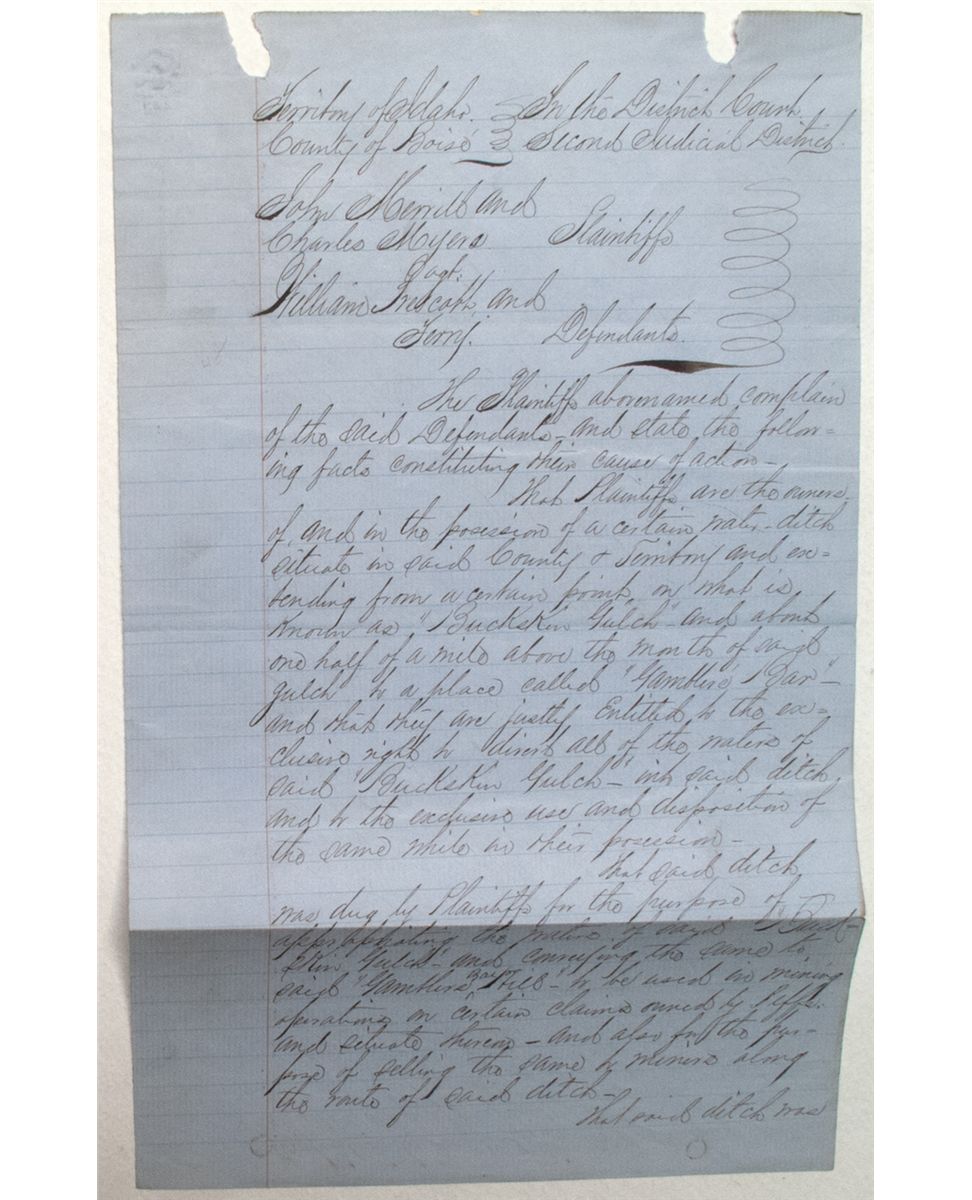 Territory of Idaho. In the District Court
County of Boisé Second Judicial District.
John Merrill and
Charles Myers Plaintiffs
agt.
William Prescott, and
Terry. Defendants.
The Plaintiffs abovenamed complain
of the said Defendants - and state the follow=
ing facts constituting their cause of action -
That Plaintiffs are the owners
of, and in the posession of a certain water-ditch
situate in said County & Territory and ex=
tending from a certain point, on what is
known as "Buckskin Gulch" and about
one half of a mile above the mouth of said
gulch to a place called "Gamblers Bar" -
and that they are justly Entitled to the ex=
clusive right to divert all of the waters of
said "Buckskin Gulch -" into said ditch,
and to the exclusive use and disposition of
the same while in their posession -
That said ditch
was dug by Plaintiffs for the purpose of
appropriating the waters of said "Buck-
skin Gulch" and conveying the same to
said "Gamblers Bar - to be used in mining
operations on certain claims owned by Plffs.
and situate thereon - and also for the pur-
pose of selling the same to miners along
the route of said ditch -
That said ditch was